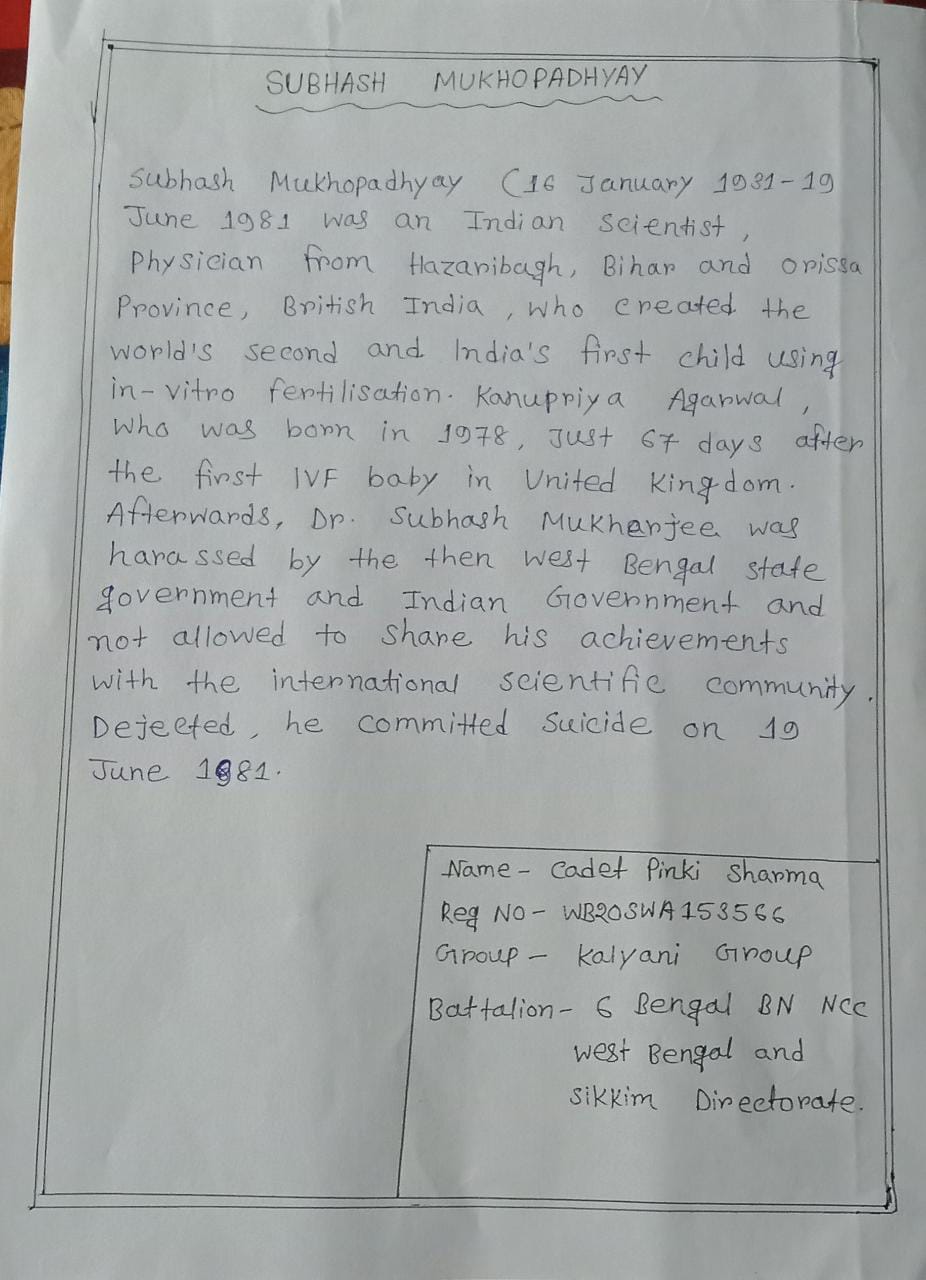 SUBHASH MUKHOPADHYAY
Subhash Mukhopadhyay (16 January 1931-19
June 1981 was an Indian Scientist,
Physician from Hazaribagh, Bihar and Orissa
Province, British India, who created the
world's second and India's first child using
in-vitro fertilisation. Kanupriya Agarwal,
Who was born in 1978, Just 67 days after
the first IVF baby in United Kingdom.
Afterwards, Dr. Subhash Mukherjee was
harassed by the then West Bengal state
government and Indian Government and
not allowed to share his achievements
with the international scientific community.
Dejected, he committed Suicide on 19
June 1981.
Name - Cadet Pinki Sharma
Reg NO - WB20SWA153566
Group - Kalyani Group
Battalion - 6 Bengal BN NCC
West Bengal and
Sikkim Directorate.